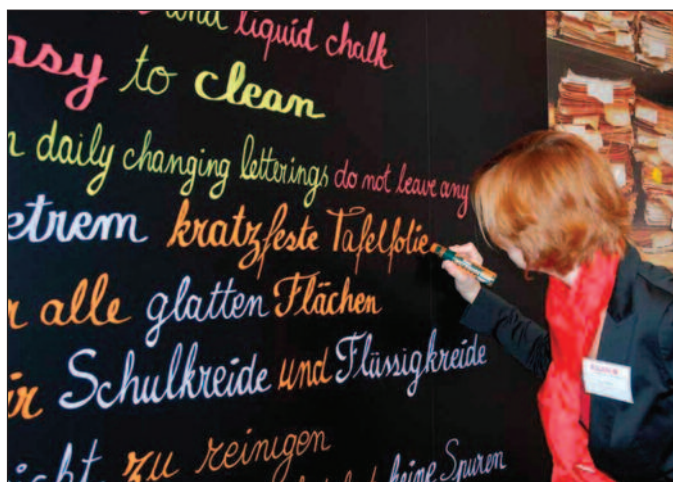 and liquid chalk
asy to clean
n daily changing letterings do not leave any
etrem kratzfeste Tafelfolie
r alle glatten Flächen
ür Schulkreide und Flüssigkreide
icht zu reinigen
keine Spuren